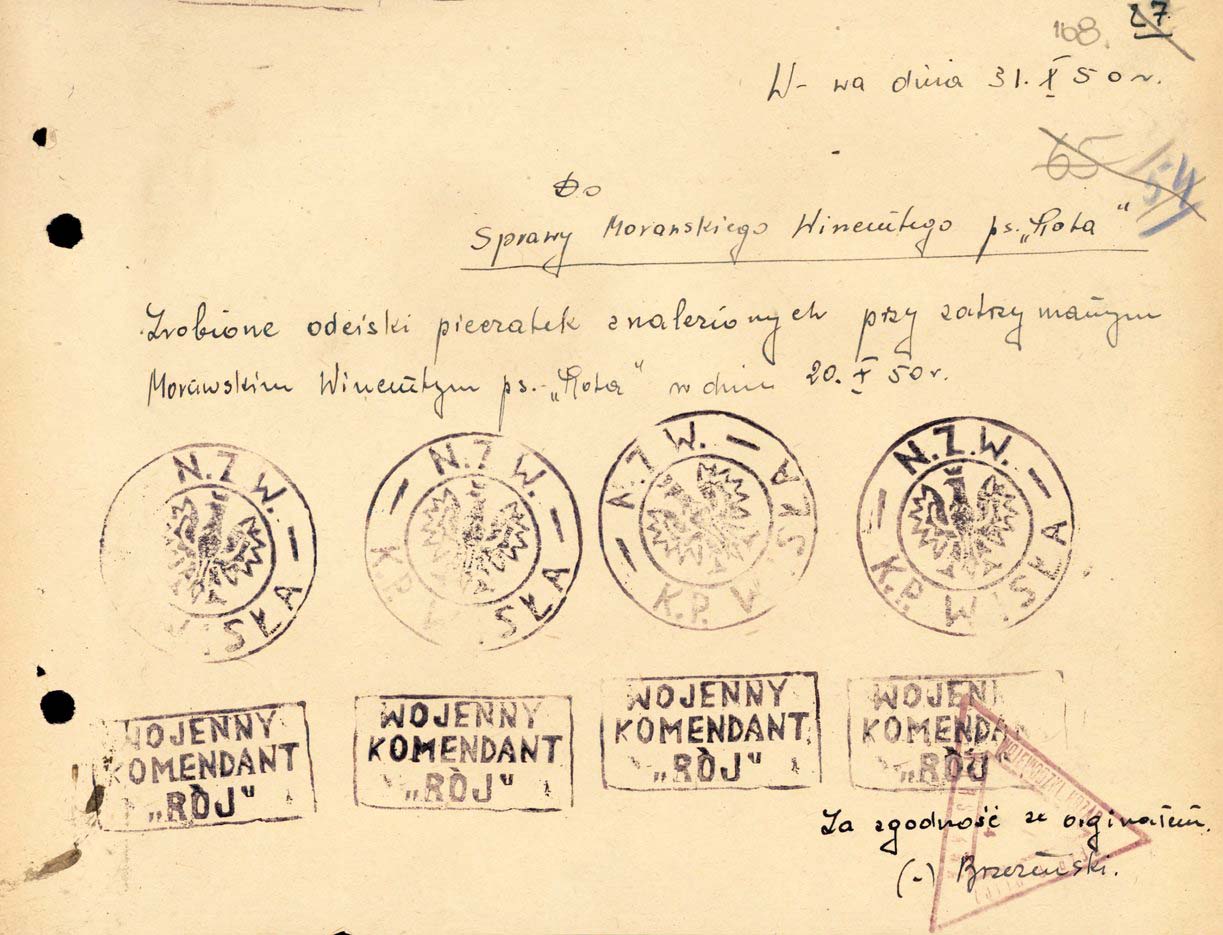 168. 27
W-wa dnia 31. X 50 r.
65 54
Do
Sprawy Morawskiego Wincentego ps. „Rota"
Zrobione odciski pieczątek znalezionych przy zatrzymanym
Morawskim Wincentym ps. „Rota" w dniu 20. X 50 r.
N.Z.W. – WISŁA
– N.Z.W. – K.P. WISŁA
– N.Z.W. – K.P. WISŁA
– N.Z.W. – K.P. WISŁA
WOJENNY
KOMENDANT
„RÒJ"
WOJENNY
KOMENDANT
„RÒJ"
WOJENNY
KOMENDANT
„RÒJ"
WOJENN
KOMENDA
„RÒJ"
Za zgodność ze orginałem.
(-) Brzeziński.